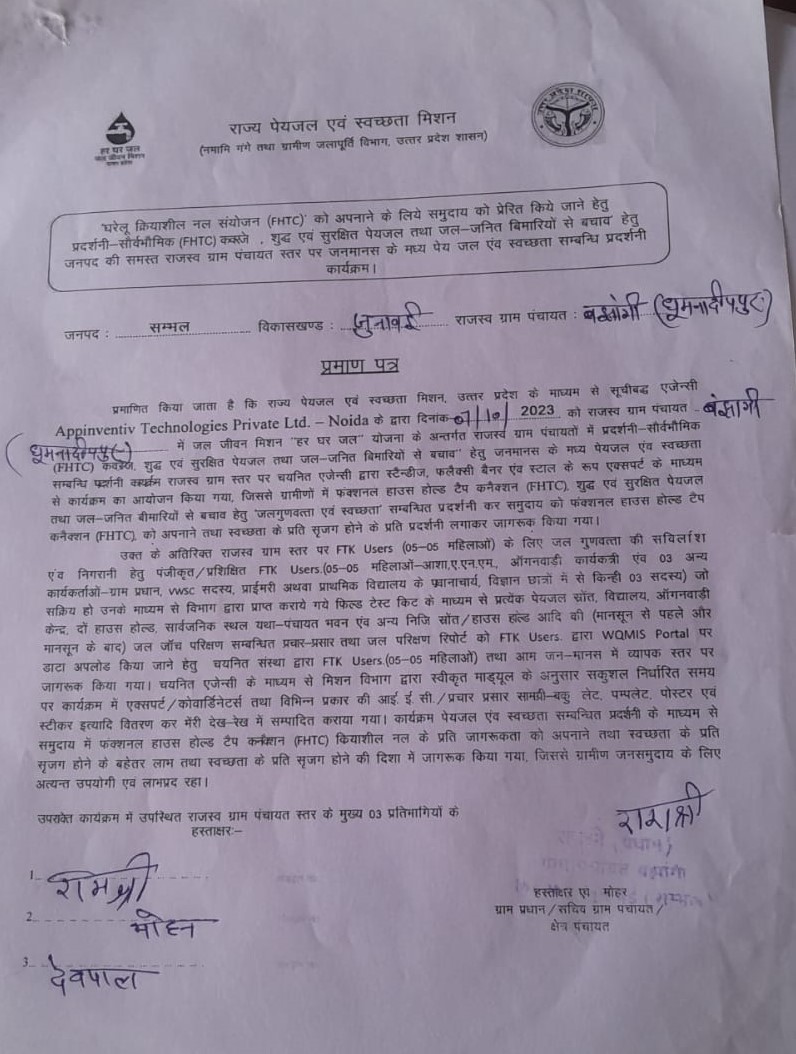 हर घर जल
जल जीवन मिशन
उत्तर प्रदेश शासन
राज्य पेयजल एवं स्वच्छता मिशन
(नमामि गंगे तथा ग्रामीण जलापूर्ति विभाग, उत्तर प्रदेश शासन)
'घरेलू क्रियाशील नल संयोजन (FHTC)' को अपनाने के लिये समुदाय को प्रेरित किये जाने हेतु
प्रदर्शनी–सौर्वभौमिक (FHTC) कवरेज , शुद्ध एवं सुरक्षित पेयजल तथा जल–जनित बिमारियों से बचाव' हेतु
जनपद की समस्त राजस्व ग्राम पंचायत स्तर पर जनमानस के मध्य पेय जल एंव स्वच्छता सम्बन्धि प्रदर्शनी
कार्यक्रम।
जनपद : सम्भल विकासखण्ड : जुनावई राजस्व ग्राम पंचायत : (धूमनादीपपुर)
प्रमाण पत्र
प्रमाणित किया जाता है कि राज्य पेयजल एवं स्वच्छता मिशन, उत्तर प्रदेश के माध्यम से सूचीबद्ध एजेन्सी
Appinventiv Technologies Private Ltd. – Noida के द्वारा दिनांक 07/10/ 2023 को राजस्व ग्राम पंचायत
(धूमनादीपपुर) में जल जीवन मिशन "हर घर जल" योजना के अन्तर्गत राजस्व ग्राम पंचायतों में प्रदर्शनी–सौर्वभौमिक
(FHTC) कवरेज, शुद्ध एवं सुरक्षित पेयजल तथा जल–जनित बिमारियों से बचाव" हेतु जनमानस के मध्य पेयजल एंव स्वच्छता
सम्बन्धि प्रदर्शनी कार्यक्रम राजस्व ग्राम स्तर पर चयनित एजेन्सी द्वारा स्टैन्डीज, फलैक्सी बैनर एंव स्टाल के रूप एक्सपर्ट के माध्यम
से कार्यक्रम का आयोजन किया गया, जिससे ग्रामीणों में फंक्शनल हाउस होल्ड टैप कनैक्शन (FHTC), शुद्ध एवं सुरक्षित पेयजल
तथा जल–जनित बीमारियों से बचाव हेतु 'जलगुणवत्ता एवं स्वच्छता' सम्बन्धित प्रदर्शनी कर समुदाय को फंक्शनल हाउस होल्ड टैप
कनैक्शन (FHTC), को अपनाने तथा स्वच्छता के प्रति सृजग होने के प्रति प्रदर्शनी लगाकर जागरूक किया गया।
उक्त के अतिरिक्त राजस्व ग्राम स्तर पर FTK Users (05–05 महिलाओं) के लिए जल गुणवत्ता की सर्विलांश
एंव निगरानी हेतु पंजीकृत/प्रशिक्षित FTK Users.(05–05 महिलाओं–आशा,ए.एन.एम., ऑंगनवाड़ी कार्यकत्री एंव 03 अन्य
कार्यकर्ताओं–ग्राम प्रधान, vwsc सदस्य, प्राईमरी अथवा प्राथमिक विद्यालय के प्रधानाचार्य, विज्ञान छात्रों में से किन्ही 03 सदस्य) जो
सक्रिय हो उनके माध्यम से विभाग द्वारा प्राप्त कराये गये फिल्ड टेस्ट किट के माध्यम से प्रत्येक पेयजल स्रोंत, विद्यालय, ऑंगनवाड़ी
केन्द्र, दों हाउस होल्ड, सार्वजनिक स्थल यथा–पंचायत भवन एंव अन्य निजि स्रोत/हाउस होल्ड आदि की (मानसून से पहले और
मानसून के बाद) जल जॉच परिक्षण सम्बन्धित प्रचार–प्रसार तथा जल परिक्षण रिपोर्ट को FTK Users. द्वारा WQMIS Portal पर
डाटा अपलोड किया जाने हेतु चयनित संस्था द्वारा FTK Users.(05–05 महिलाओं) तथा आम जन–मानस में व्यापक स्तर पर
जागरूक किया गया। चयनित एजेन्सी के माध्यम से मिशन विभाग द्वारा स्वीकृत माड्यूल के अनुसार सकुशल निर्धारित समय
पर कार्यक्रम में एक्सपर्ट/कोवार्डिनेटर्स तथा विभिन्न प्रकार की आई. ई. सी./प्रचार प्रसार सामग्री–बकु लेट, पम्पलेट, पोस्टर एवं
स्टीकर इत्यादि वितरण कर मेरी देख–रेख में सम्पादित कराया गया। कार्यक्रम पेयजल एंव स्वच्छता सम्बन्धित प्रदर्शनी के माध्यम से
समुदाय में फंक्शनल हाउस होल्ड टैप कनैक्शन (FHTC) कियाशील नल के प्रति जागरूकता को अपनाने तथा स्वच्छता के प्रति
सृजग होने के बहेतर लाभ तथा स्वच्छता के प्रति सृजग होने की दिशा में जागरूक किया गया, जिससे ग्रामीण जनसमुदाय के लिए
अत्यन्त उपयोगी एवं लाभप्रद रहा।
उपरोक्त कार्यक्रम में उपस्थित राजस्व ग्राम पंचायत स्तर के मुख्य 03 प्रतिभागियों के
हस्ताक्षर:–
रामश्री
1. रामश्री
2. मोहन
3. देवपाल
हस्ताक्षर एंव मोहर
ग्राम प्रधान/सचिव ग्राम पंचायत/
क्षेत्र पंचायत